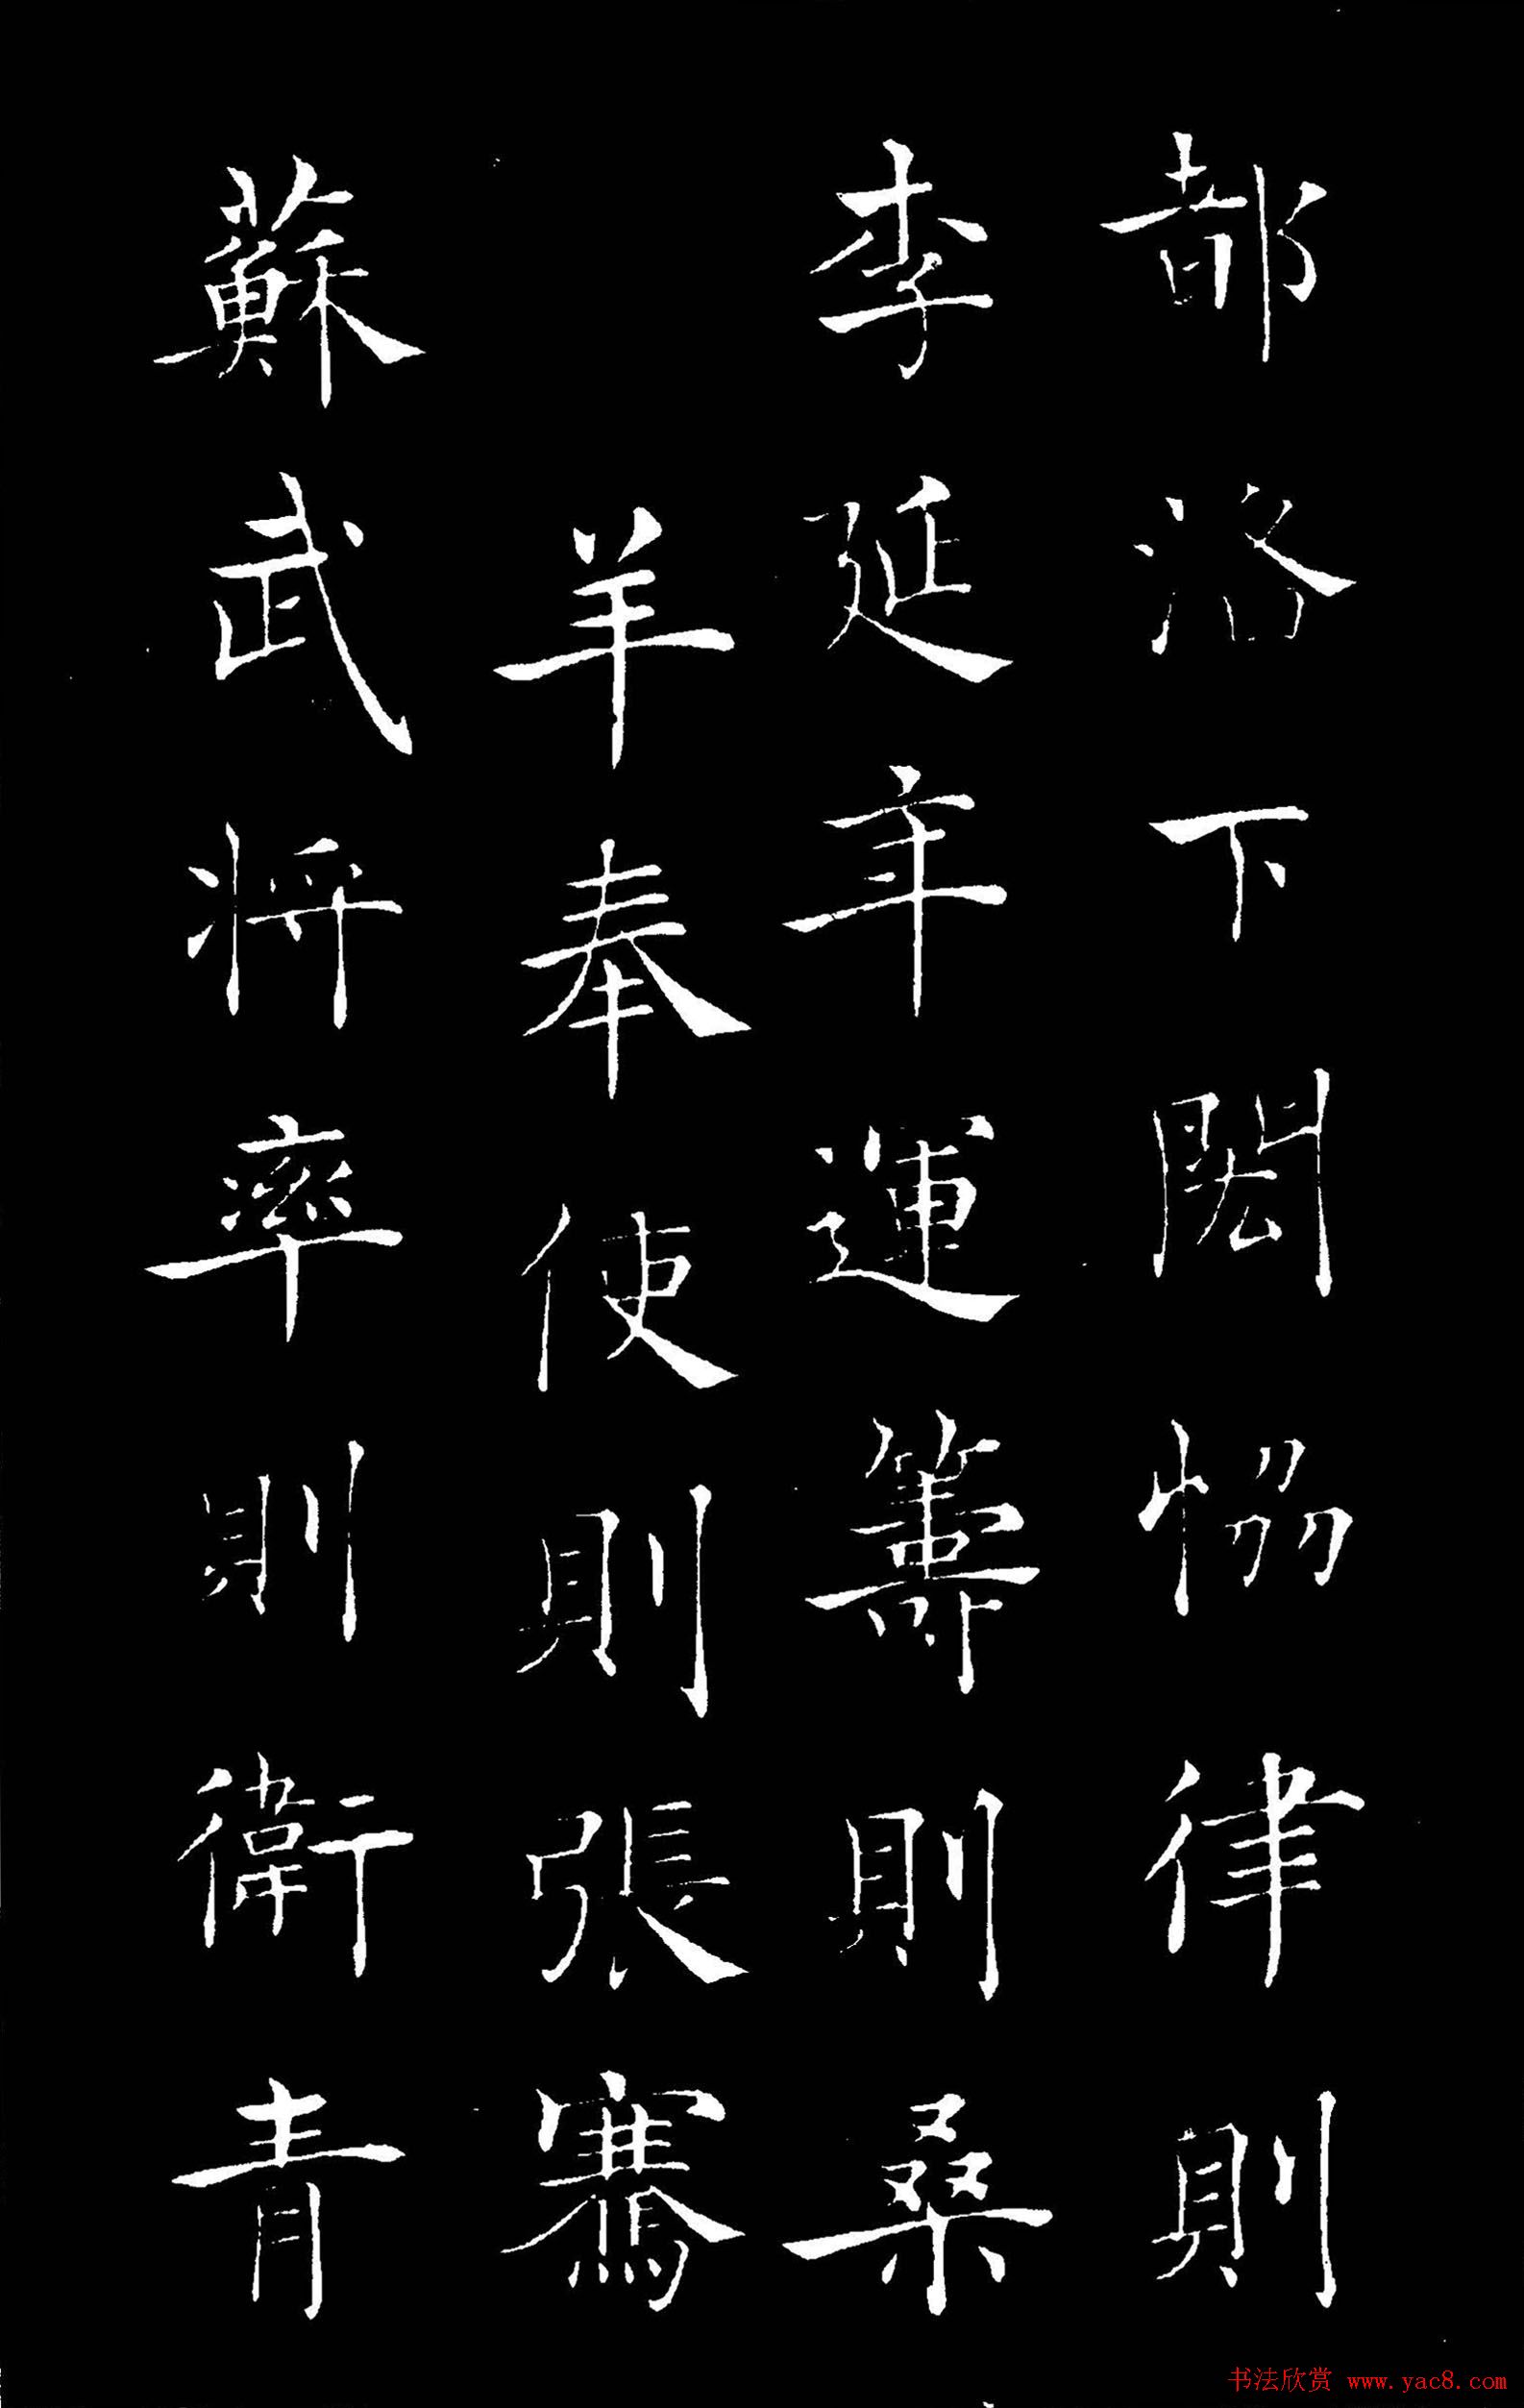 都洛下閎恊律則
李延年運籌則桑
羊奉使則張騫
蘇武将率則衛青
书法欣赏 www.yac8.com